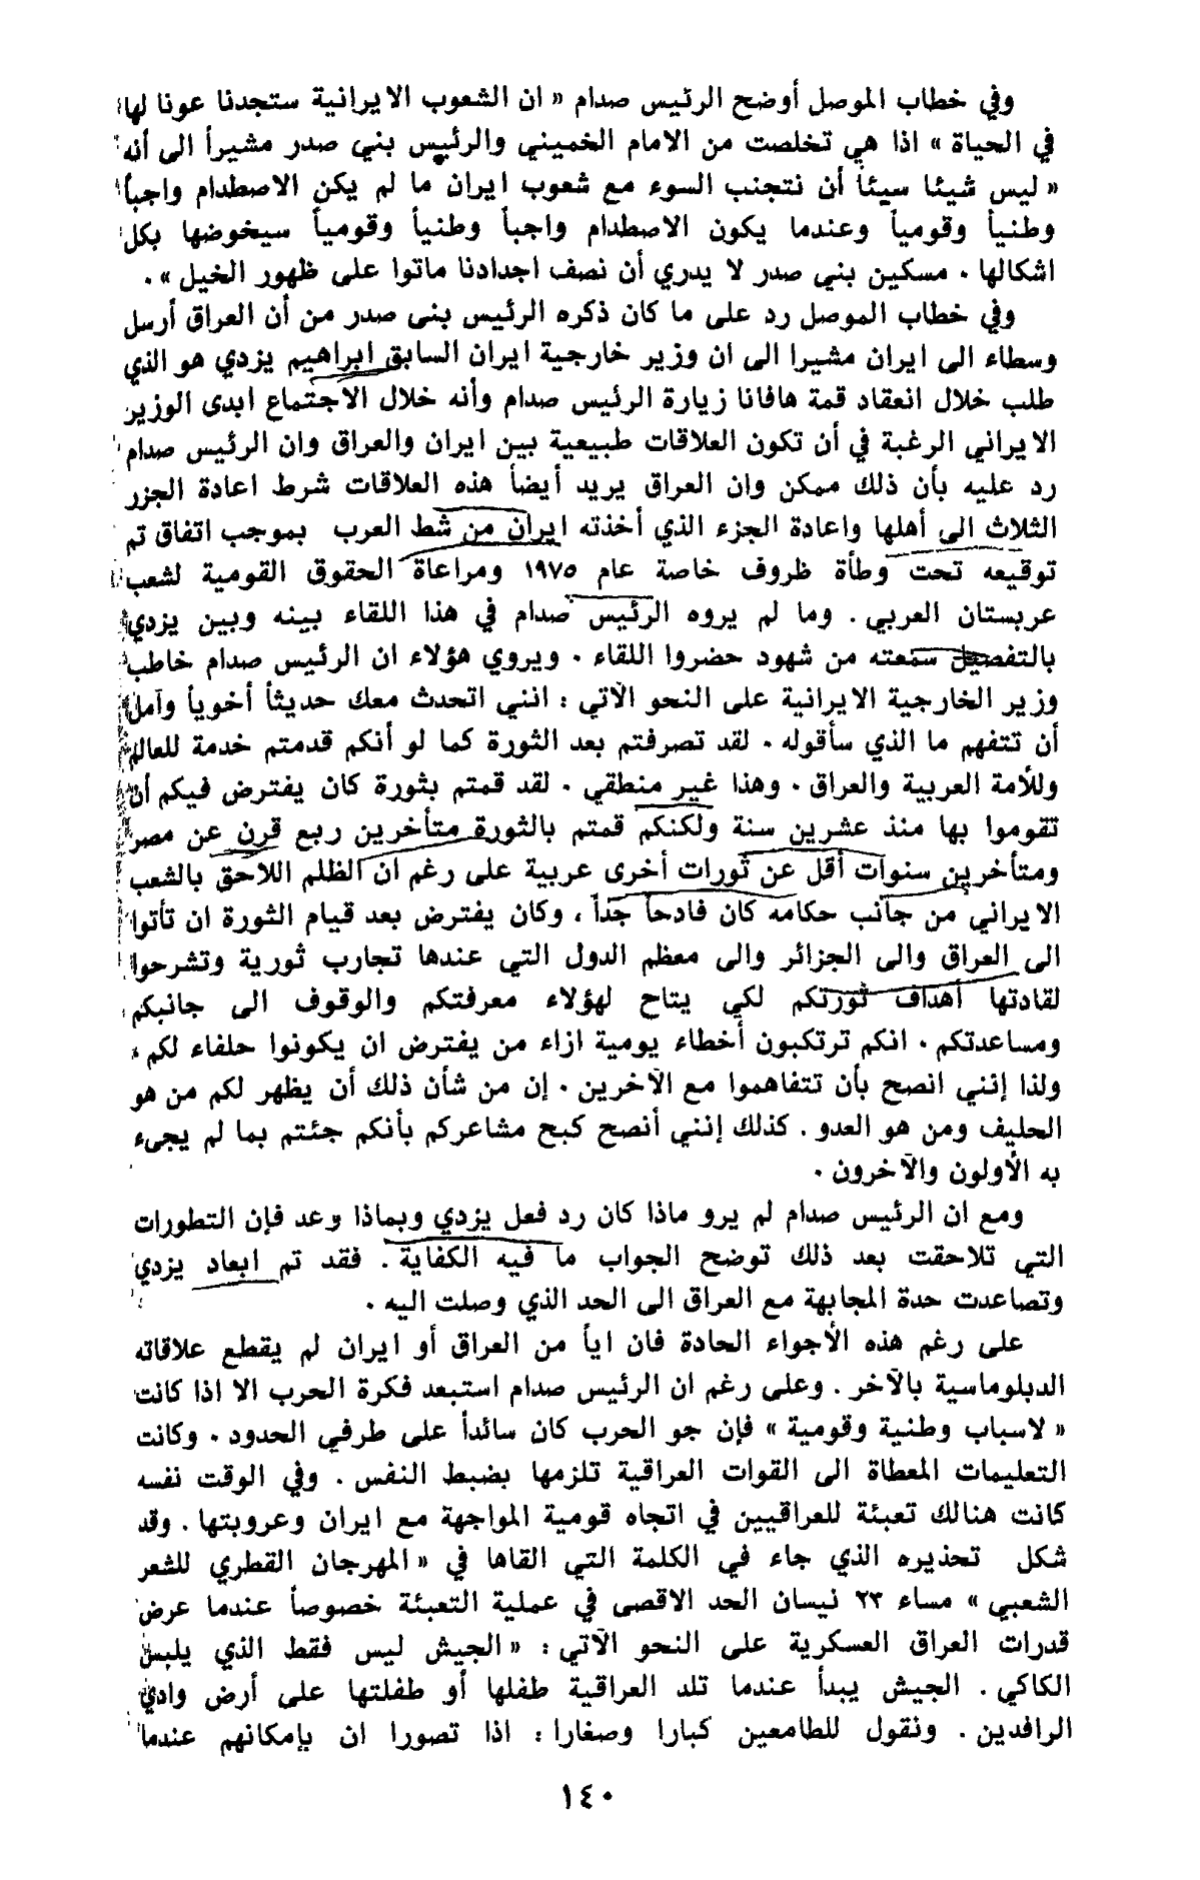 وفي خطاب الموصل أوضح الرئيس صدام « ان الشعوب الايرانية ستجدنا عونا لها
في الحياة » اذا هي تخلصت من الامام الخميني والرئيس بني صدر مشيراً الى أنه
« ليس شيئا سيئاً أن نتجنب السوء مع شعوب ايران ما لم يكن الاصطدام واجباً
وطنياً وقومياً وعندما يكون الاصطدام واجباً وطنياً وقومياً سيخوضها بكل
اشكالها . مسكين بني صدر لا يدري أن نصف اجدادنا ماتوا على ظهور الخيل » .
وفي خطاب الموصل رد على ما كان ذكره الرئيس بنى صدر من أن العراق أرسل
وسطاء الى ايران مشيرا الى ان وزير خارجية ايران السابق ابراهيم يزدي هو الذي
طلب خلال انعقاد قمة هافانا زيارة الرئيس صدام وأنه خلال الاجتماع ابدى الوزير
الايراني الرغبة في أن تكون العلاقات طبيعية بين ايران والعراق وان الرئيس صدام
رد عليه بأن ذلك ممكن وان العراق يريد أيضاً هذه العلاقات شرط اعادة الجزر
الثلاث الى أهلها واعادة الجزء الذي أخذته ايران من شط العرب بموجب اتفاق تم
توقيعه تحت وطأة ظروف خاصة عام ١٩٧٥ ومراعاة الحقوق القومية لشعب
عربستان العربي . وما لم يروه الرئيس صدام في هذا اللقاء بينه وبين يزدي
بالتفصيل سمعته من شهود حضروا اللقاء . ويروي هؤلاء ان الرئيس صدام خاطب
وزير الخارجية الايرانية على النحو الآتي : انني اتحدث معك حديثاً أخوياً وآمل
أن تتفهم ما الذي سأقوله . لقد تصرفتم بعد الثورة كما لو أنكم قدمتم خدمة للعالم
وللأمة العربية والعراق . وهذا غير منطقي . لقد قمتم بثورة كان يفترض فيكم أن
تقوموا بها منذ عشرين سنة ولكنكم قمتم بالثورة متأخرين ربع قرن عن مصر
ومتأخرين سنوات أقل عن ثورات أخرى عربية على رغم ان الظلم اللاحق بالشعب
الايراني من جانب حكامه كان فادحاً جداً ، وكان يفترض بعد قيام الثورة ان تأتوا
الى العراق والى الجزائر والى معظم الدول التي عندها تجارب ثورية وتشرحوا
لقادتها أهداف ثورتكم لكي يتاح لهؤلاء معرفتكم والوقوف الى جانبكم
ومساعدتكم . انكم ترتكبون أخطاء يومية ازاء من يفترض ان يكونوا حلفاء لكم .
ولذا إنني انصح بأن تتفاهموا مع الآخرين . إن من شأن ذلك أن يظهر لكم من هو
الحليف ومن هو العدو . كذلك إنني أنصح كبح مشاعركم بأنكم جئتم بما لم يجىء
به الأولون والآخرون .
ومع ان الرئيس صدام لم يرو ماذا كان رد فعل يزدي وبماذا وعد فإن التطورات
التي تلاحقت بعد ذلك توضح الجواب ما فيه الكفاية . فقد تم ابعاد يزدي
وتصاعدت حدة المجابهة مع العراق الى الحد الذي وصلت اليه .
على رغم هذه الأجواء الحادة فان اياً من العراق أو ايران لم يقطع علاقاته
الدبلوماسية بالآخر . وعلى رغم ان الرئيس صدام استبعد فكرة الحرب الا اذا كانت
« لاسباب وطنية وقومية » فإن جو الحرب كان سائداً على طرفي الحدود . وكانت
التعليمات المعطاة الى القوات العراقية تلزمها بضبط النفس . وفي الوقت نفسه
كانت هنالك تعبئة للعراقيين في اتجاه قومية المواجهة مع ايران وعروبتها . وقد
شكل تحذيره الذي جاء في الكلمة التي القاها في « المهرجان القطري للشعر
الشعبي » مساء ٢٣ نيسان الحد الاقصى في عملية التعبئة خصوصاً عندما عرض
قدرات العراق العسكرية على النحو الآتي : « الجيش ليس فقط الذي يلبس
الكاكي . الجيش يبدأ عندما تلد العراقية طفلها أو طفلتها على أرض وادي
الرافدين . ونقول للطامعين كبارا وصغارا : اذا تصورا ان بإمكانهم عندما
١٤٠